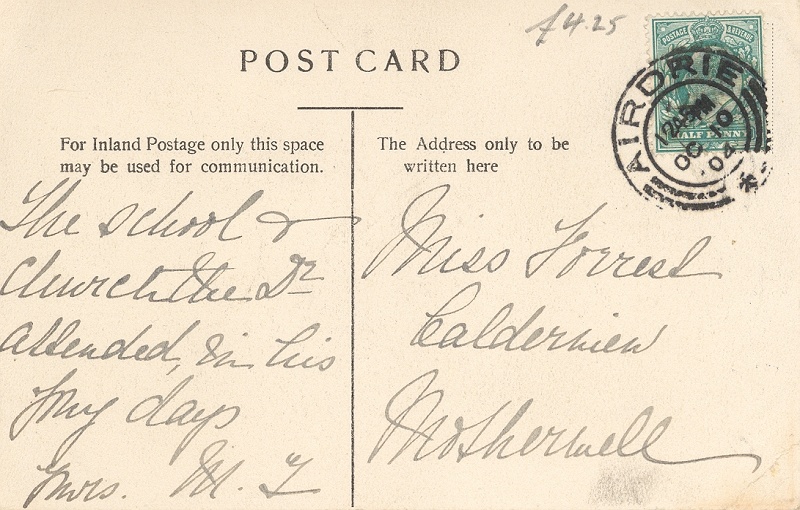 £4.25
POST CARD
POSTAGE & REVENUE
HALF PENNY
AIRDRIE
OC 10
04
For Inland Postage only this space
may be used for communication.
The Address only to be
written here
The school &
Church the Dr
attended, in his
days
Mrs. M. F
Miss Forrest
Calderview
Motherwell